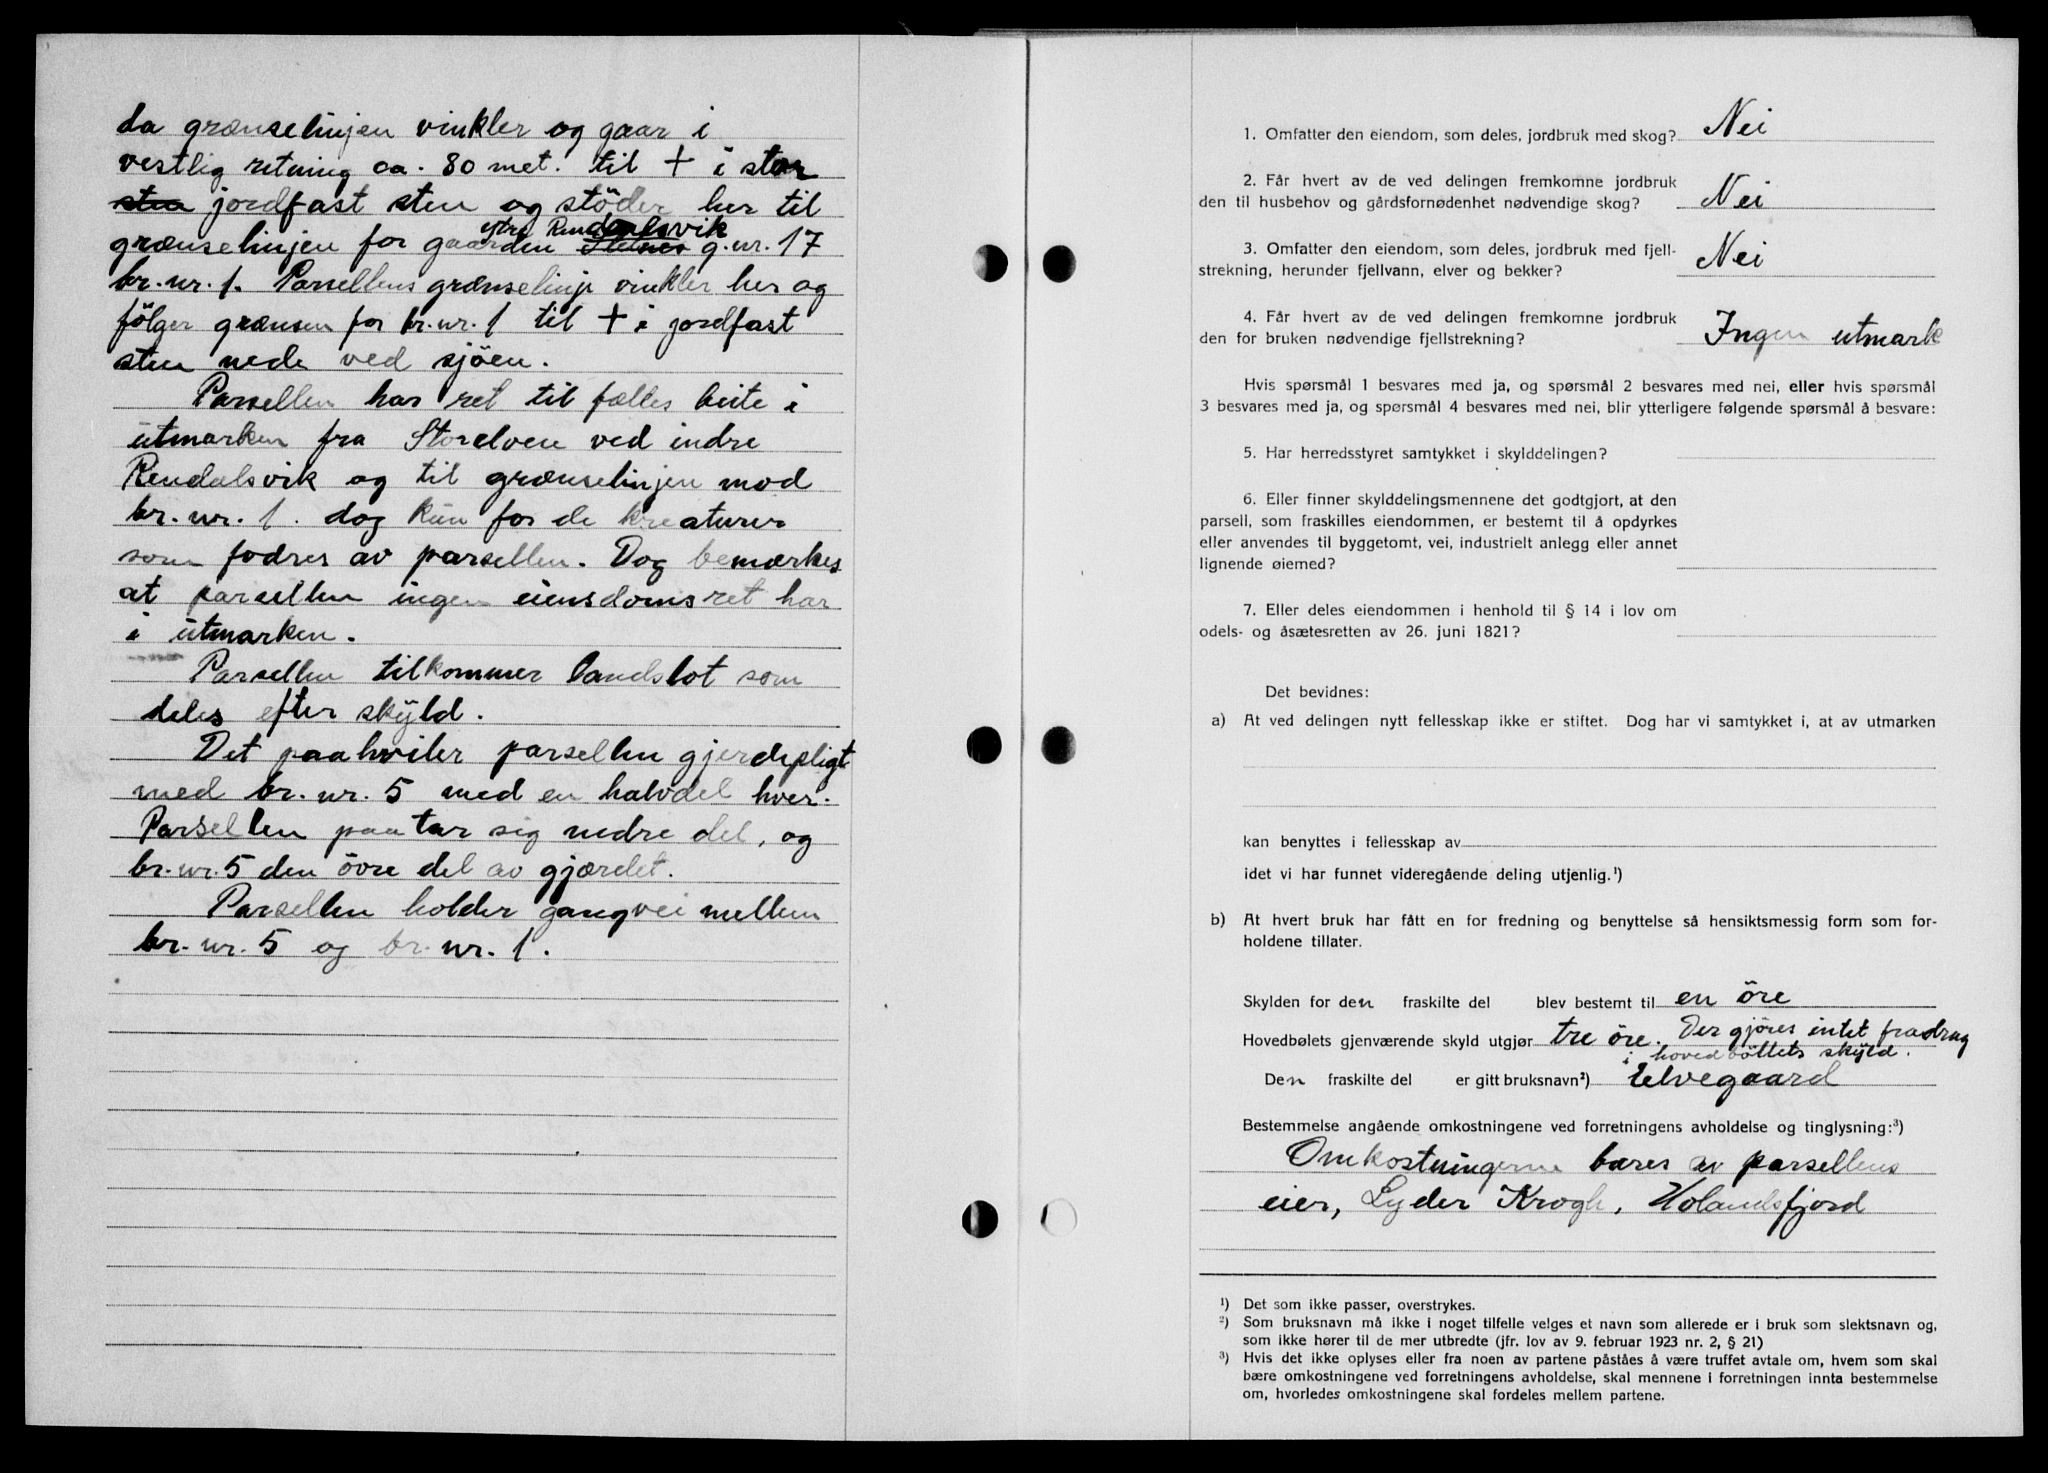 da grænselinjen vinkler og gaar i
vestlig retning ca. 80 met. til + i stor
sten jordfast sten og stöder her til
ytre Rendalsvik
grænselinjen for gaarden g.nr. 17
br.nr. 1. Parsellens grænselinje vinkler her og
fölger grænsen for br.nr. 1 til + i jordfast
sten nede ved sjöen.
Parsellen har ret til fælles beite i
utmarken fra Storelven ved indre
Rendalsvik og til grænselinjen mod
br.nr. 1. dog kun for de kreaturer
som fodres av parsellen. Dog bemærkes
at parsellen ingen eiensdomsret har
i utmarken.
Parsellen tilkommer landslot som
deles efter skyld.
Det paahviler parsellen gjerdepligt
med br.nr. 5 med en halvdel hver.
Parsellen paatar sig nedre del, og
br.nr. 5 den övre del av gjærdet.
Parsellen holder gangvei mellem
br.nr. 5 og br.nr. 1.
1. Omfatter den eiendom, som deles, jordbruk med skog? Nei
2. Får hvert av de ved delingen fremkomne jordbruk
den til husbehov og gårdsfornødenhet nødvendige skog? Nei
3. Omfatter den eiendom, som deles, jordbruk med fjell-
strekning, herunder fjellvann, elver og bekker? Nei
4. Får hvert av de ved delingen fremkomne jordbruk
den for bruken nødvendige fjellstrekning? Ingen utmark
Hvis spørsmål 1 besvares med ja, og spørsmål 2 besvares med nei, eller hvis spørsmål
3 besvares med ja, og spørsmål 4 besvares med nei, blir ytterligere følgende spørsmål å besvare:
5. Har herredsstyret samtykket i skylddelingen?
6. Eller finner skylddelingsmennene det godtgjort, at den
parsell, som fraskilles eiendommen, er bestemt til å opdyrkes
eller anvendes til byggetomt, vei, industrielt anlegg eller annet
lignende øiemed?
7. Eller deles eiendommen i henhold til § 14 i lov om
odels- og åsætesretten av 26. juni 1821?
Det bevidnes:
a) At ved delingen nytt fellesskap ikke er stiftet. Dog har vi samtykket i, at av utmarken
kan benyttes i fellesskap av
idet vi har funnet videregående deling utjenlig.¹)
b) At hvert bruk har fått en for fredning og benyttelse så hensiktsmessig form som for-
holdene tillater.
Skylden for den fraskilte del blev bestemt til en öre
Hovedbølets gjenværende skyld utgjør tre öre. Der gjöres intet fradrag
i hovedböllets skyld.
Den fraskilte del er gitt bruksnavn²) Elvegaard
Bestemmelse angående omkostningene ved forretningens avholdelse og tinglysning:³)
Omkostningerne bæres av parsellens
eier, Lyder Krogh, Holandsfjord
¹) Det som ikke passer, overstrykes.
²) Som bruksnavn må ikke i noget tilfelle velges et navn som allerede er i bruk som slektsnavn og,
som ikke hører til de mer utbredte (jfr. lov av 9. februar 1923 nr. 2, § 21)
³) Hvis det ikke oplyses eller fra noen av partene påståes å være truffet avtale om, hvem som skal
bære omkostningene ved forretningens avholdelse, skal mennene i forretningen innta bestemmelse
om, hvorledes omkostningene skal fordeles mellem partene.